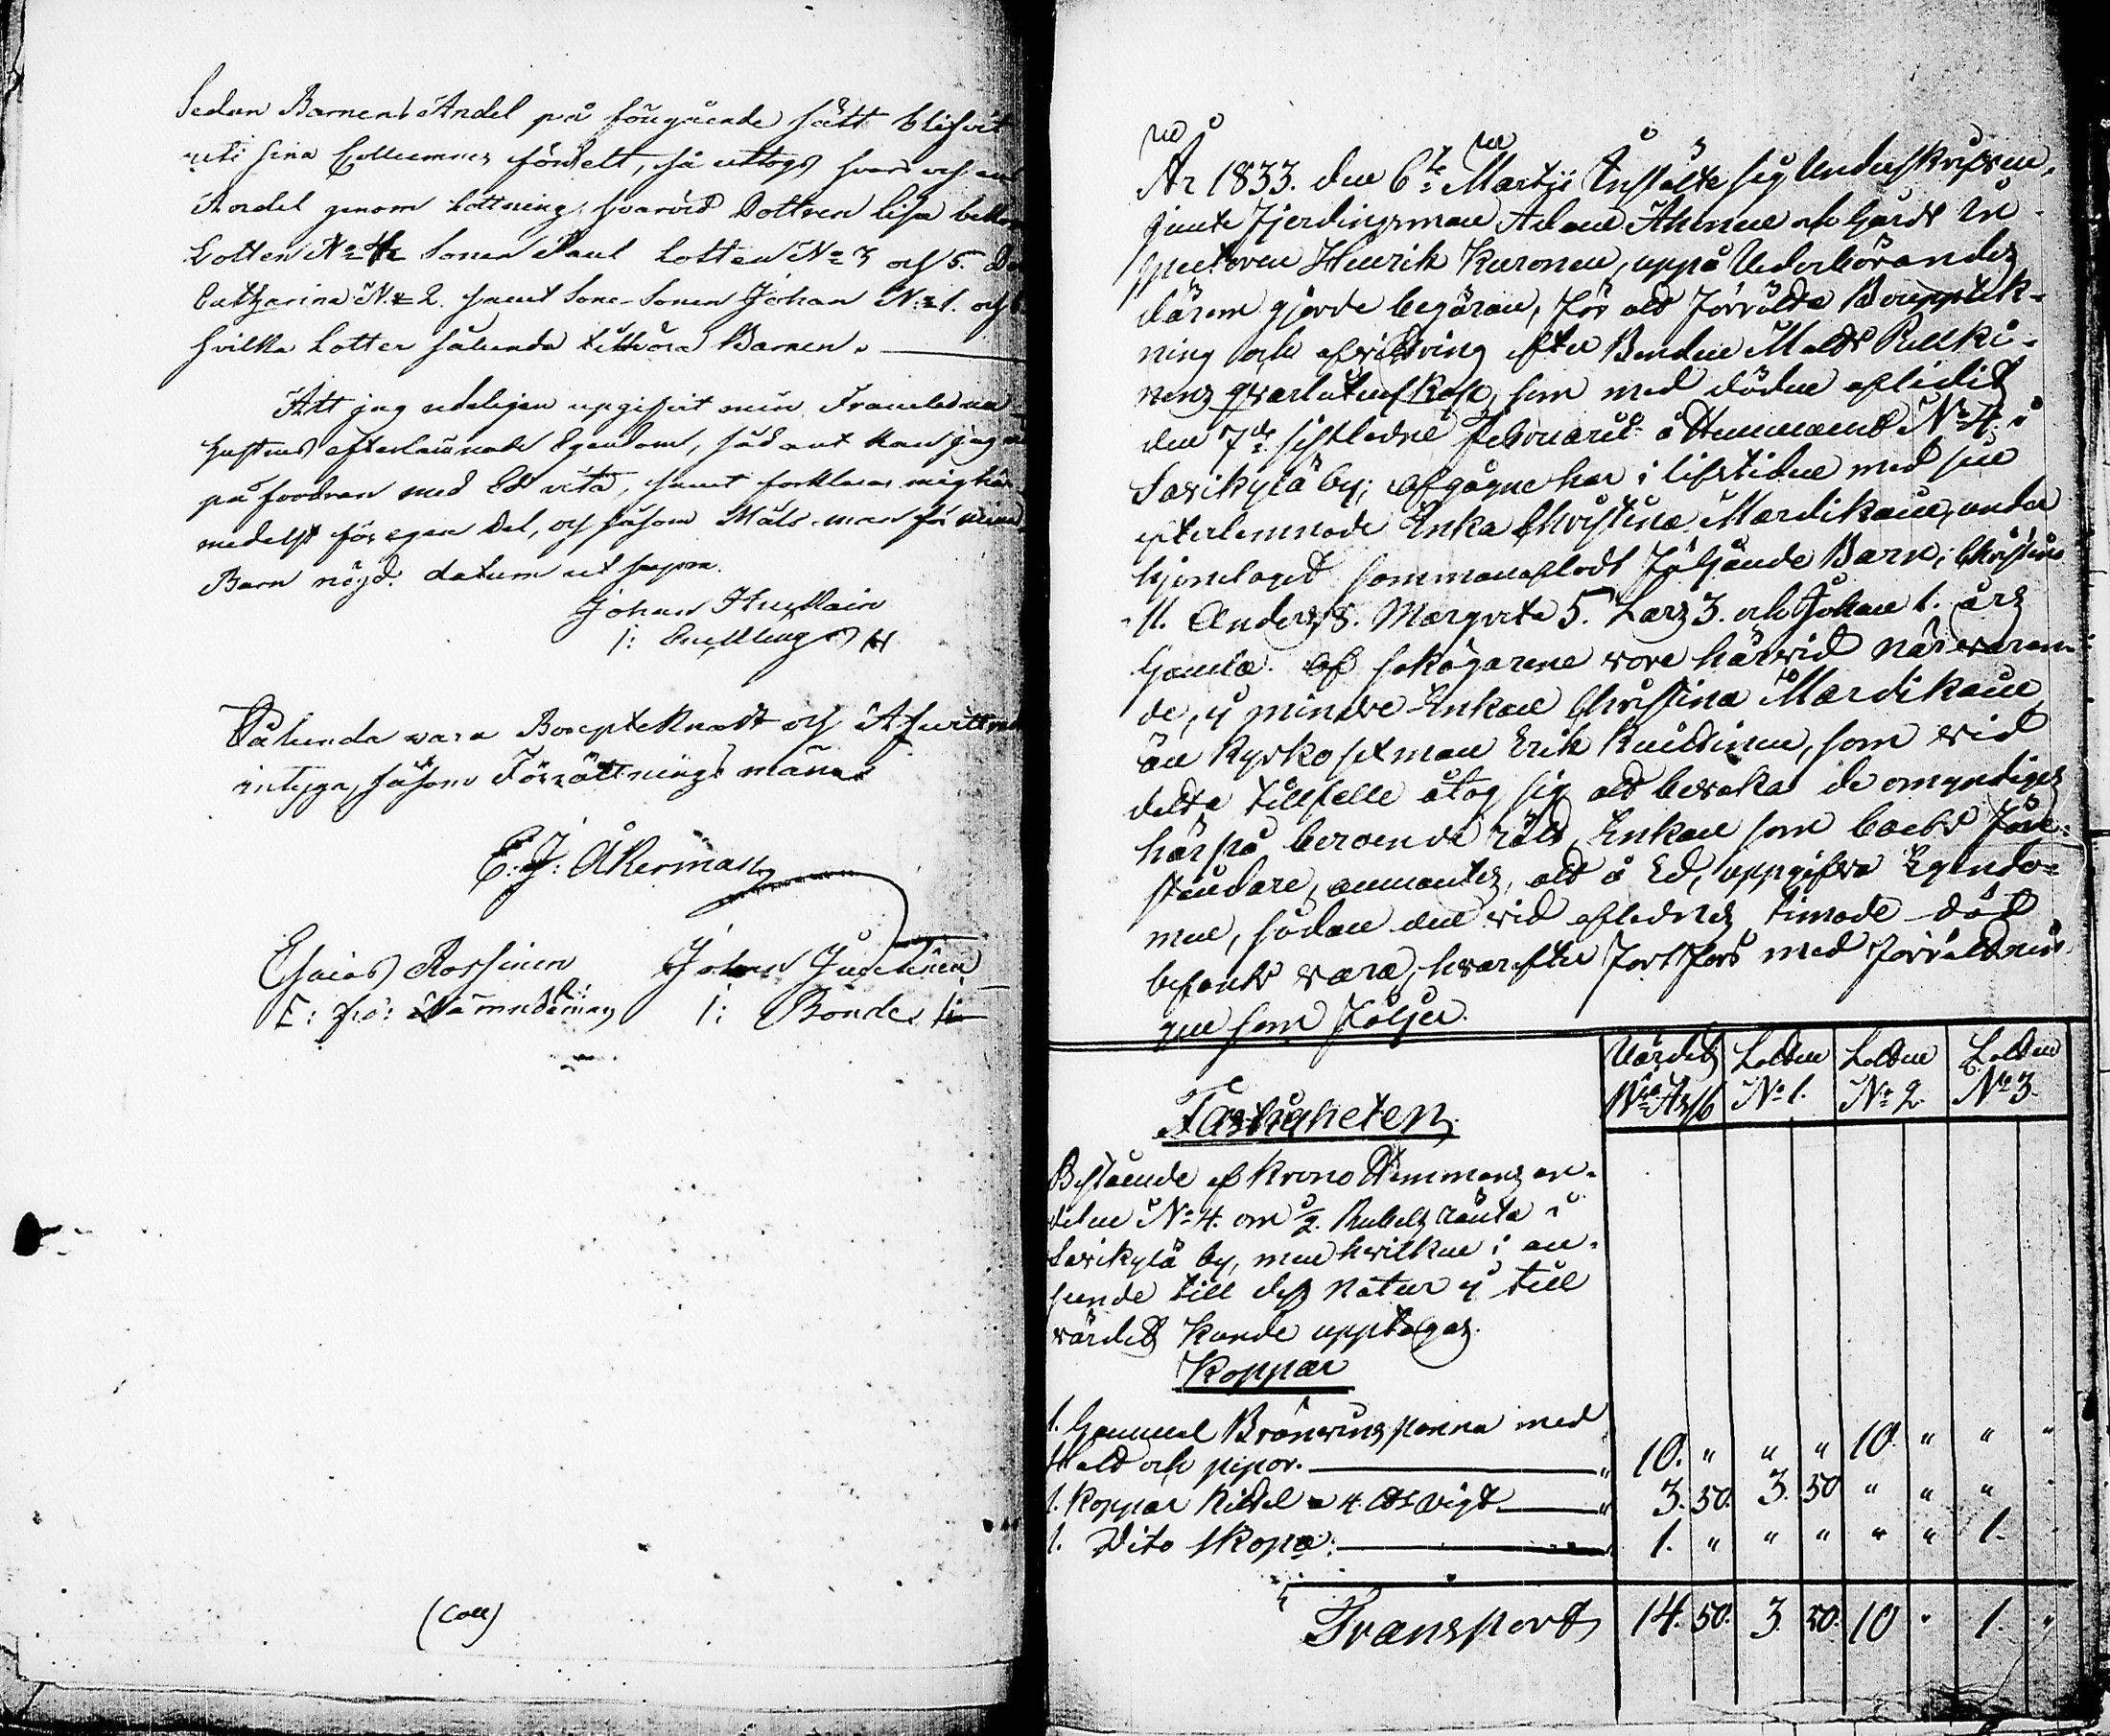 Sedan Barnens Andel på föregående sätt blifvit
uti sina Collumner fördelt, så uttogs hvars och ens
Andel genom Lottning, hvarvid Dottren Lisa bekom
Lotten No 4 Sonen Paul Lotten No 3 och 5. Do
Catharina No 2. samt Sone-Sonen Johan No 1. och
hvilka Lotter sålunda tillhöra Barnen.
Att jag redeligen upgifvit min Framledna
Hustrus efterlämnade Egendom, sådant kan jag
på fordran med Ed vita, samt forklarar mig här
medelst för egen Del, och såsom Måls-man för mina
Barn nöjd. datum ut supra.
Johan
Sålunda vara Bouptecknadt och Afvittrat
intyga, såsom Förrättnings männer
E: J: Åkerman
Esaias Rossinen Johan
Nämndeman /: Bonde :/
(Coll)
År 1833. den 6te Martji Inställte sig Underskrifven,
jemte Fjerdingsman Adam Ahonen och Gårds In-
spectoren Henrik Kuronen, uppå Vederbörandes
därom gjorde begäran, för att förrätta Bouppteck-
ning och afvittring efter Bonden Matts Pulki-
nens qvarlåtenskap, som med döden aflidit
den 7de sistledne Februarii å Hemmanet No 4. i
Savikylä by; Afgågne har i lifstiden med sin
efterlemnade Enka Christina Mardikain, under
hjonelaget sammanaflat följande Barn; Christina
11. Anders 8. Margreta 5. Lars 3. och Johan 1. års
Gamla. Af sakägarene vore härvid närvaran-
de, ej mindre Enkan Christina Mardikain
än Kyrkosexman Erik, som vid
detta tillfelle åtog sig att bevaka de omyndiges
härpå beroende rätt, Enkan som boets före-
ståndare, anmantes, att å Ed, uppgifva Egendo-
men, sådan den vid afledne timade död
befants vara, hvarefter fortfors med förrättnin-
gen som följer.
Värdet Lotten Lotten Lotten
No 1. No 2 No 3.
Fastigheten
Bestående af Krono Hemmans an-
delen No 4. om 1/2. Rubels ränta i
Savikylä by, men hvilken i an-
seende till dess natur ej till
värdet kunde upptagas.
Koppar
1. Gammal Brännvins panna med
hatt och pipor. " 10. " " " 10. " " "
1. Koppar kittel 4. vigt " 3. 50. 3. 50 " " "
1. Dito skopa: 1. " " " " " 1.
Transport 14. 50. 3. 50. 10 " 1. "